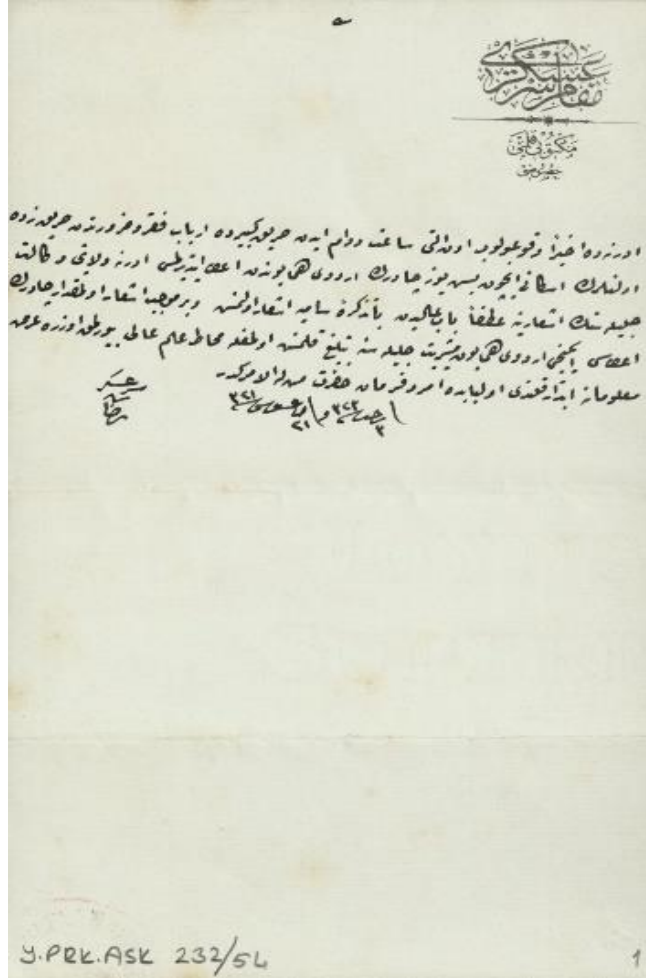 مقام سرعسكری
مكتوبی قلمی
ادرنه‌ده اخیرا وقوعبولوب اون التی ساعت دوام ایدن حریق كبیرده ارباب فقر و ضرورتدن حریقزده
اولنلرك اسكانی ایچون بش یوز چادرك اردوی همایوندن اعطا ایتدیرلمسی ادرنه ولایتی وكالت
جلیله‌سنك اشعارینه عطفا باب عالیدن باتذكرهٔ سامیه اشعار اولنمش و برموجب اشعار اولمقدار چادرك
اعطاسی ایكنجی اردوی همایون مشیریت جلیله‌سنه تبلیغ قلنمش اولمغله محاط علم عالی بیورلمق اوزره عرض
معلوماته ابتدار قلندی اولبابده امر و فرمان حضرت من له الامركدر
٣٢٣ ٣٢١
٣ ٢١
سرعسكر
رضا
Y.PRK.ASK 232/54
1